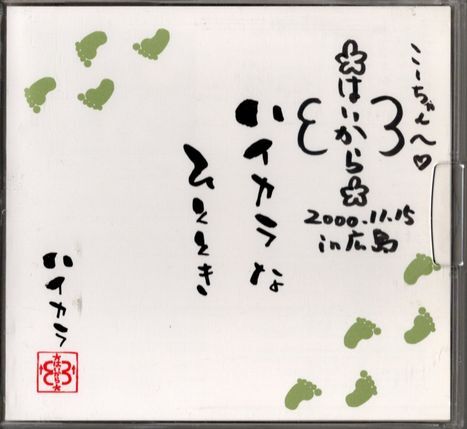 こーちゃんへ♡
はいから
2000.11.15
in広島
ハイカラな
ひととき
ハイカラ
はいから